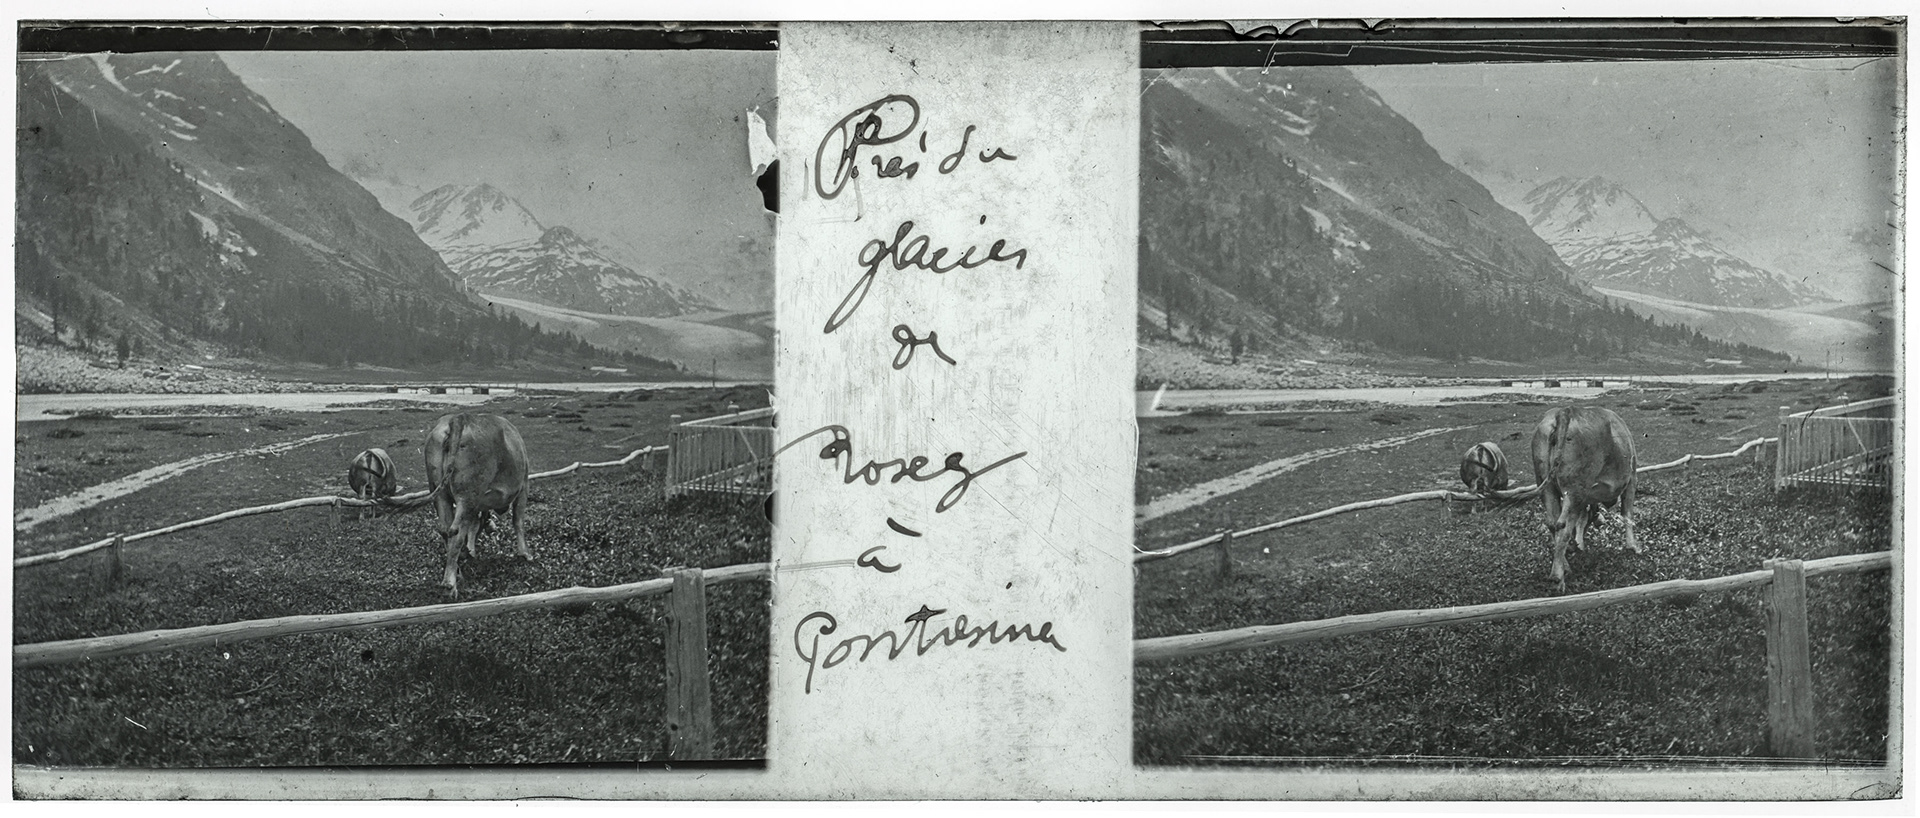 Près du
glacier
de
Roseg
à
Pontresina